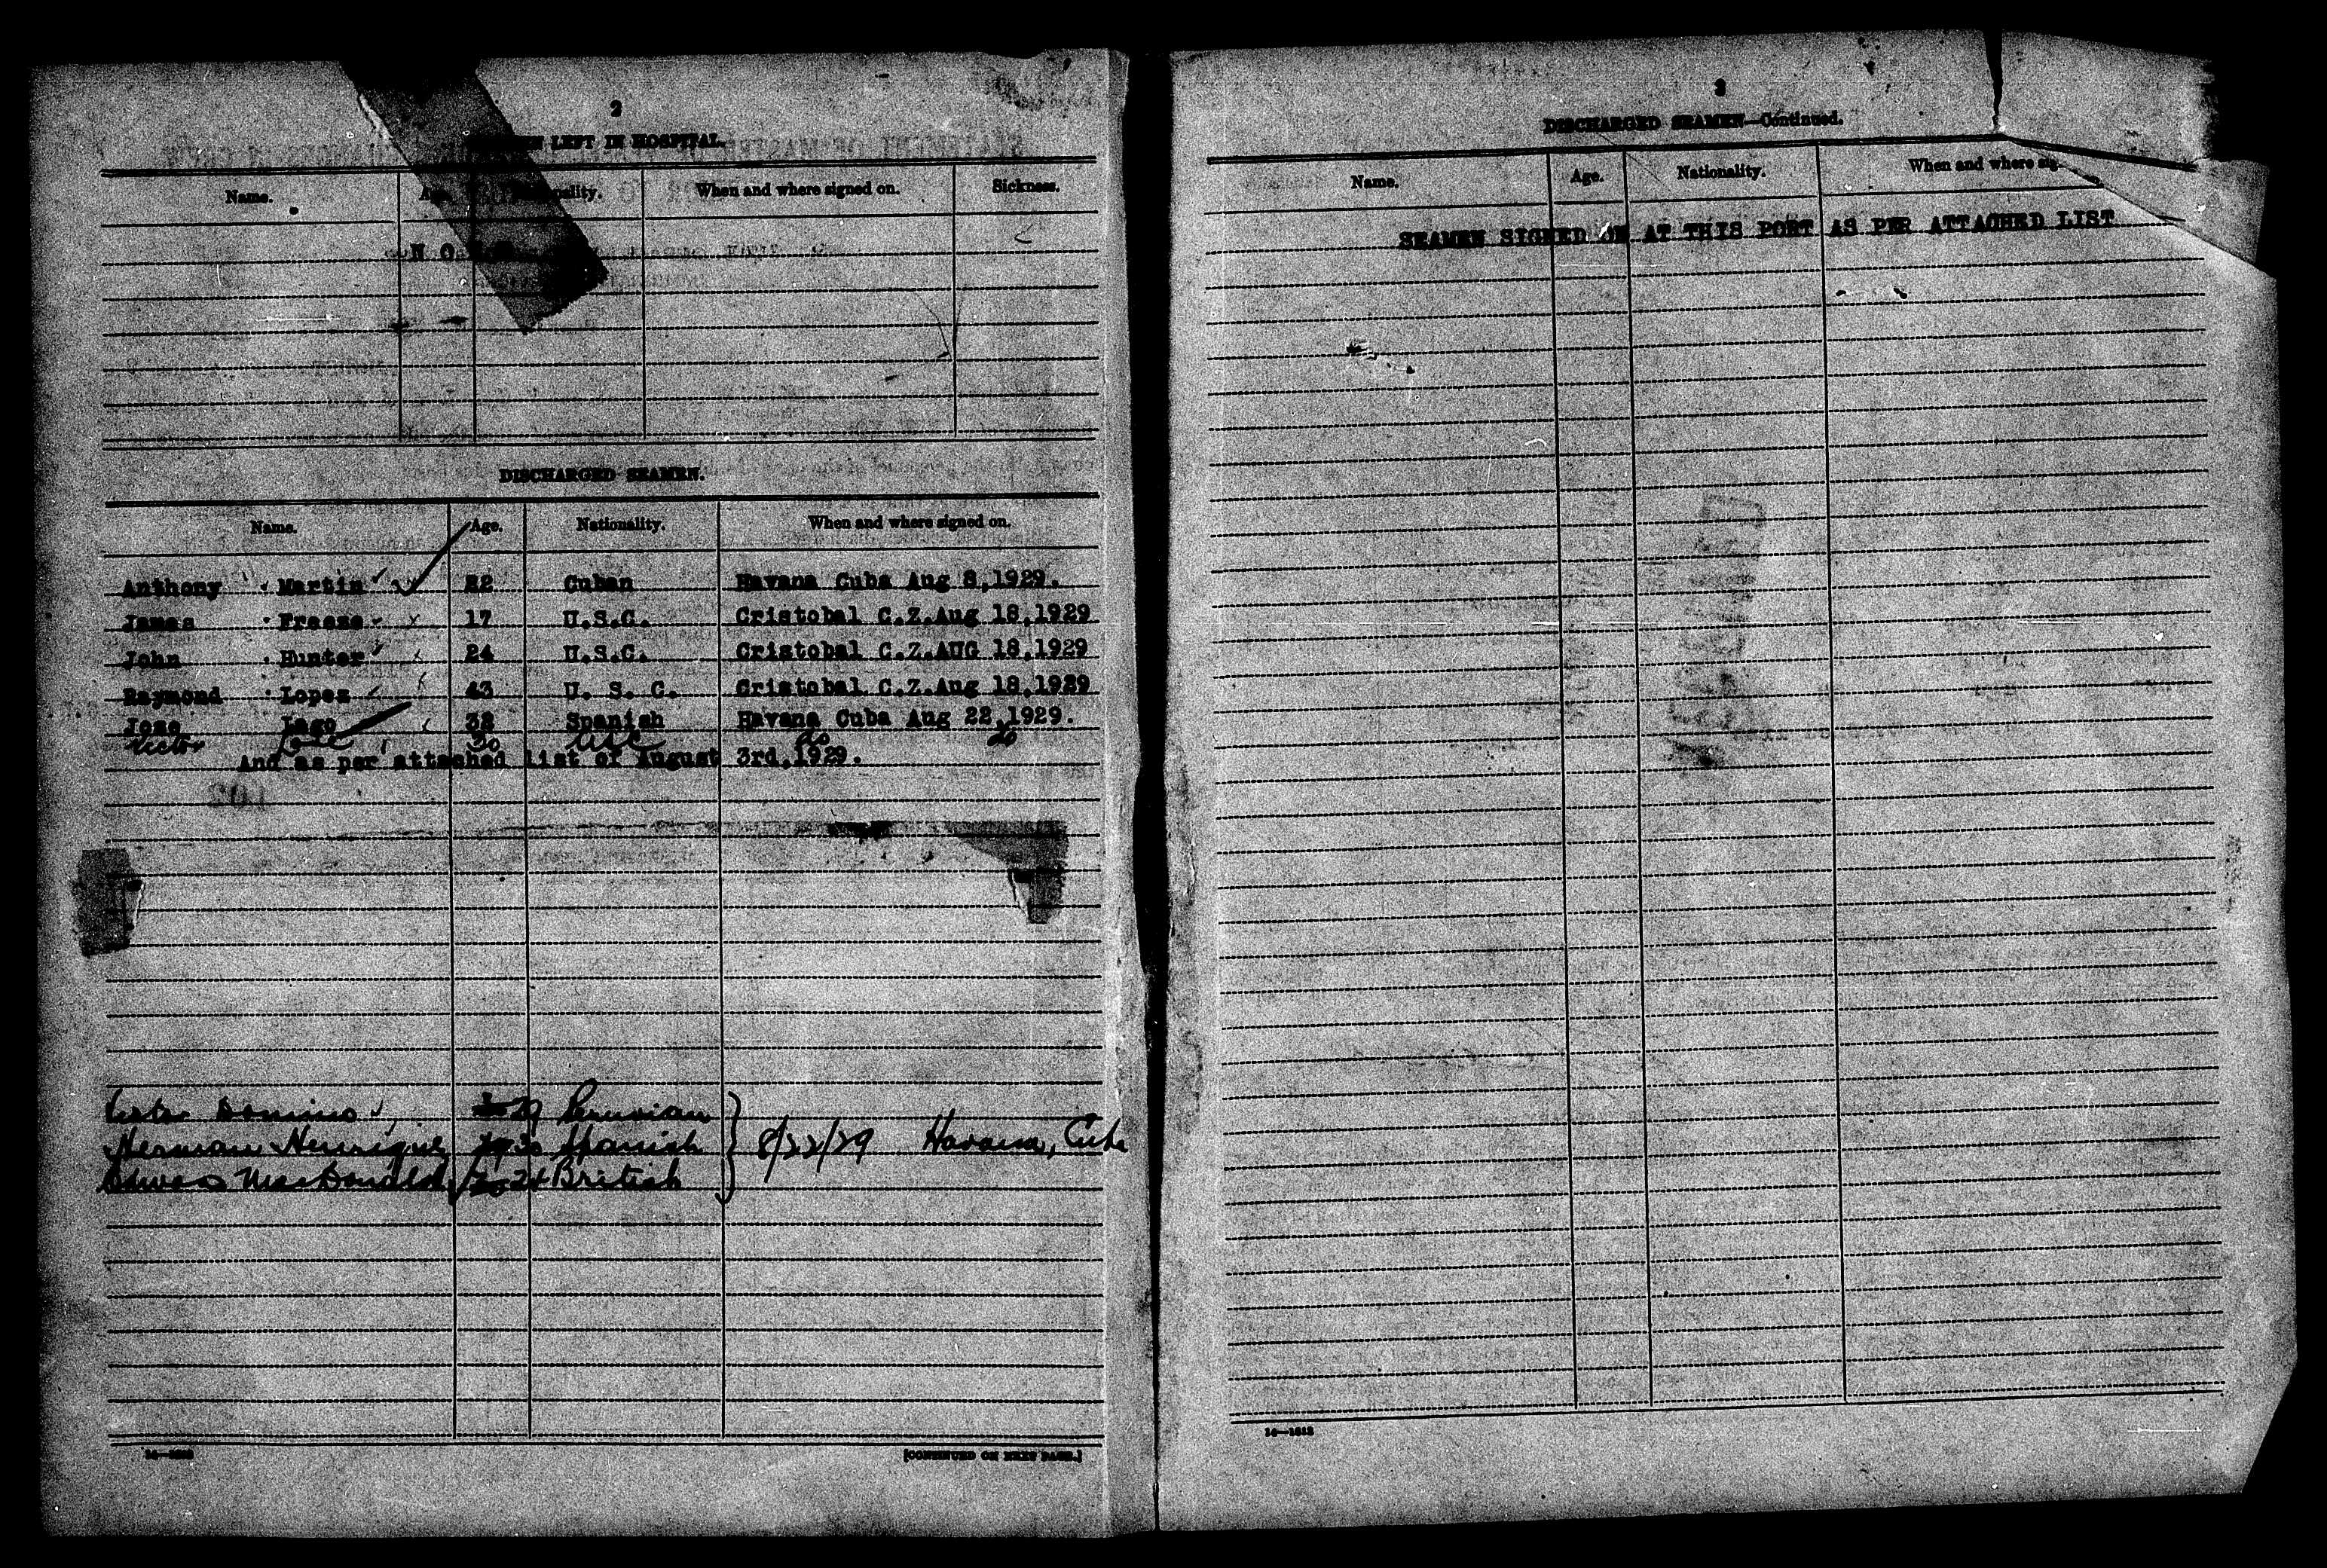 2
LEFT IN HOSPITAL.
Name. Age. Nationality. When and where signed on. Sickness.
DISCHARGED SEAMEN.
Name. Age. Nationality. When and where signed on.
Anthony Martin 22 Cuban Havana Cuba Aug 8,1929.
James Freeze 17 U.S.C. Cristobal C.Z.Aug 18,1929
John Hunter 24 U.S.C. Cristobal C.Z.AUG 18,1929
Raymond Lopez 43 U. S. C. Cristobal C.Z.Aug 18,1929
Jose Lago 32 Spanish Havana Cuba Aug 22,1929.
Victor 30 do do
And as per attached list of August 3rd,1929.
Domino 29 Peruvian
Herman Henrique 30 Spanish 8/22/29 Havana, Cuba
Edward MacDonald 24 British
[CONTINUED ON NEXT PAGE.]
3
DISCHARGED SEAMEN—Continued.
Name. Age. Nationality. When and where sig
SEAMEN SIGNED ON AT THIS PORT AS PER ATTACHED LIST